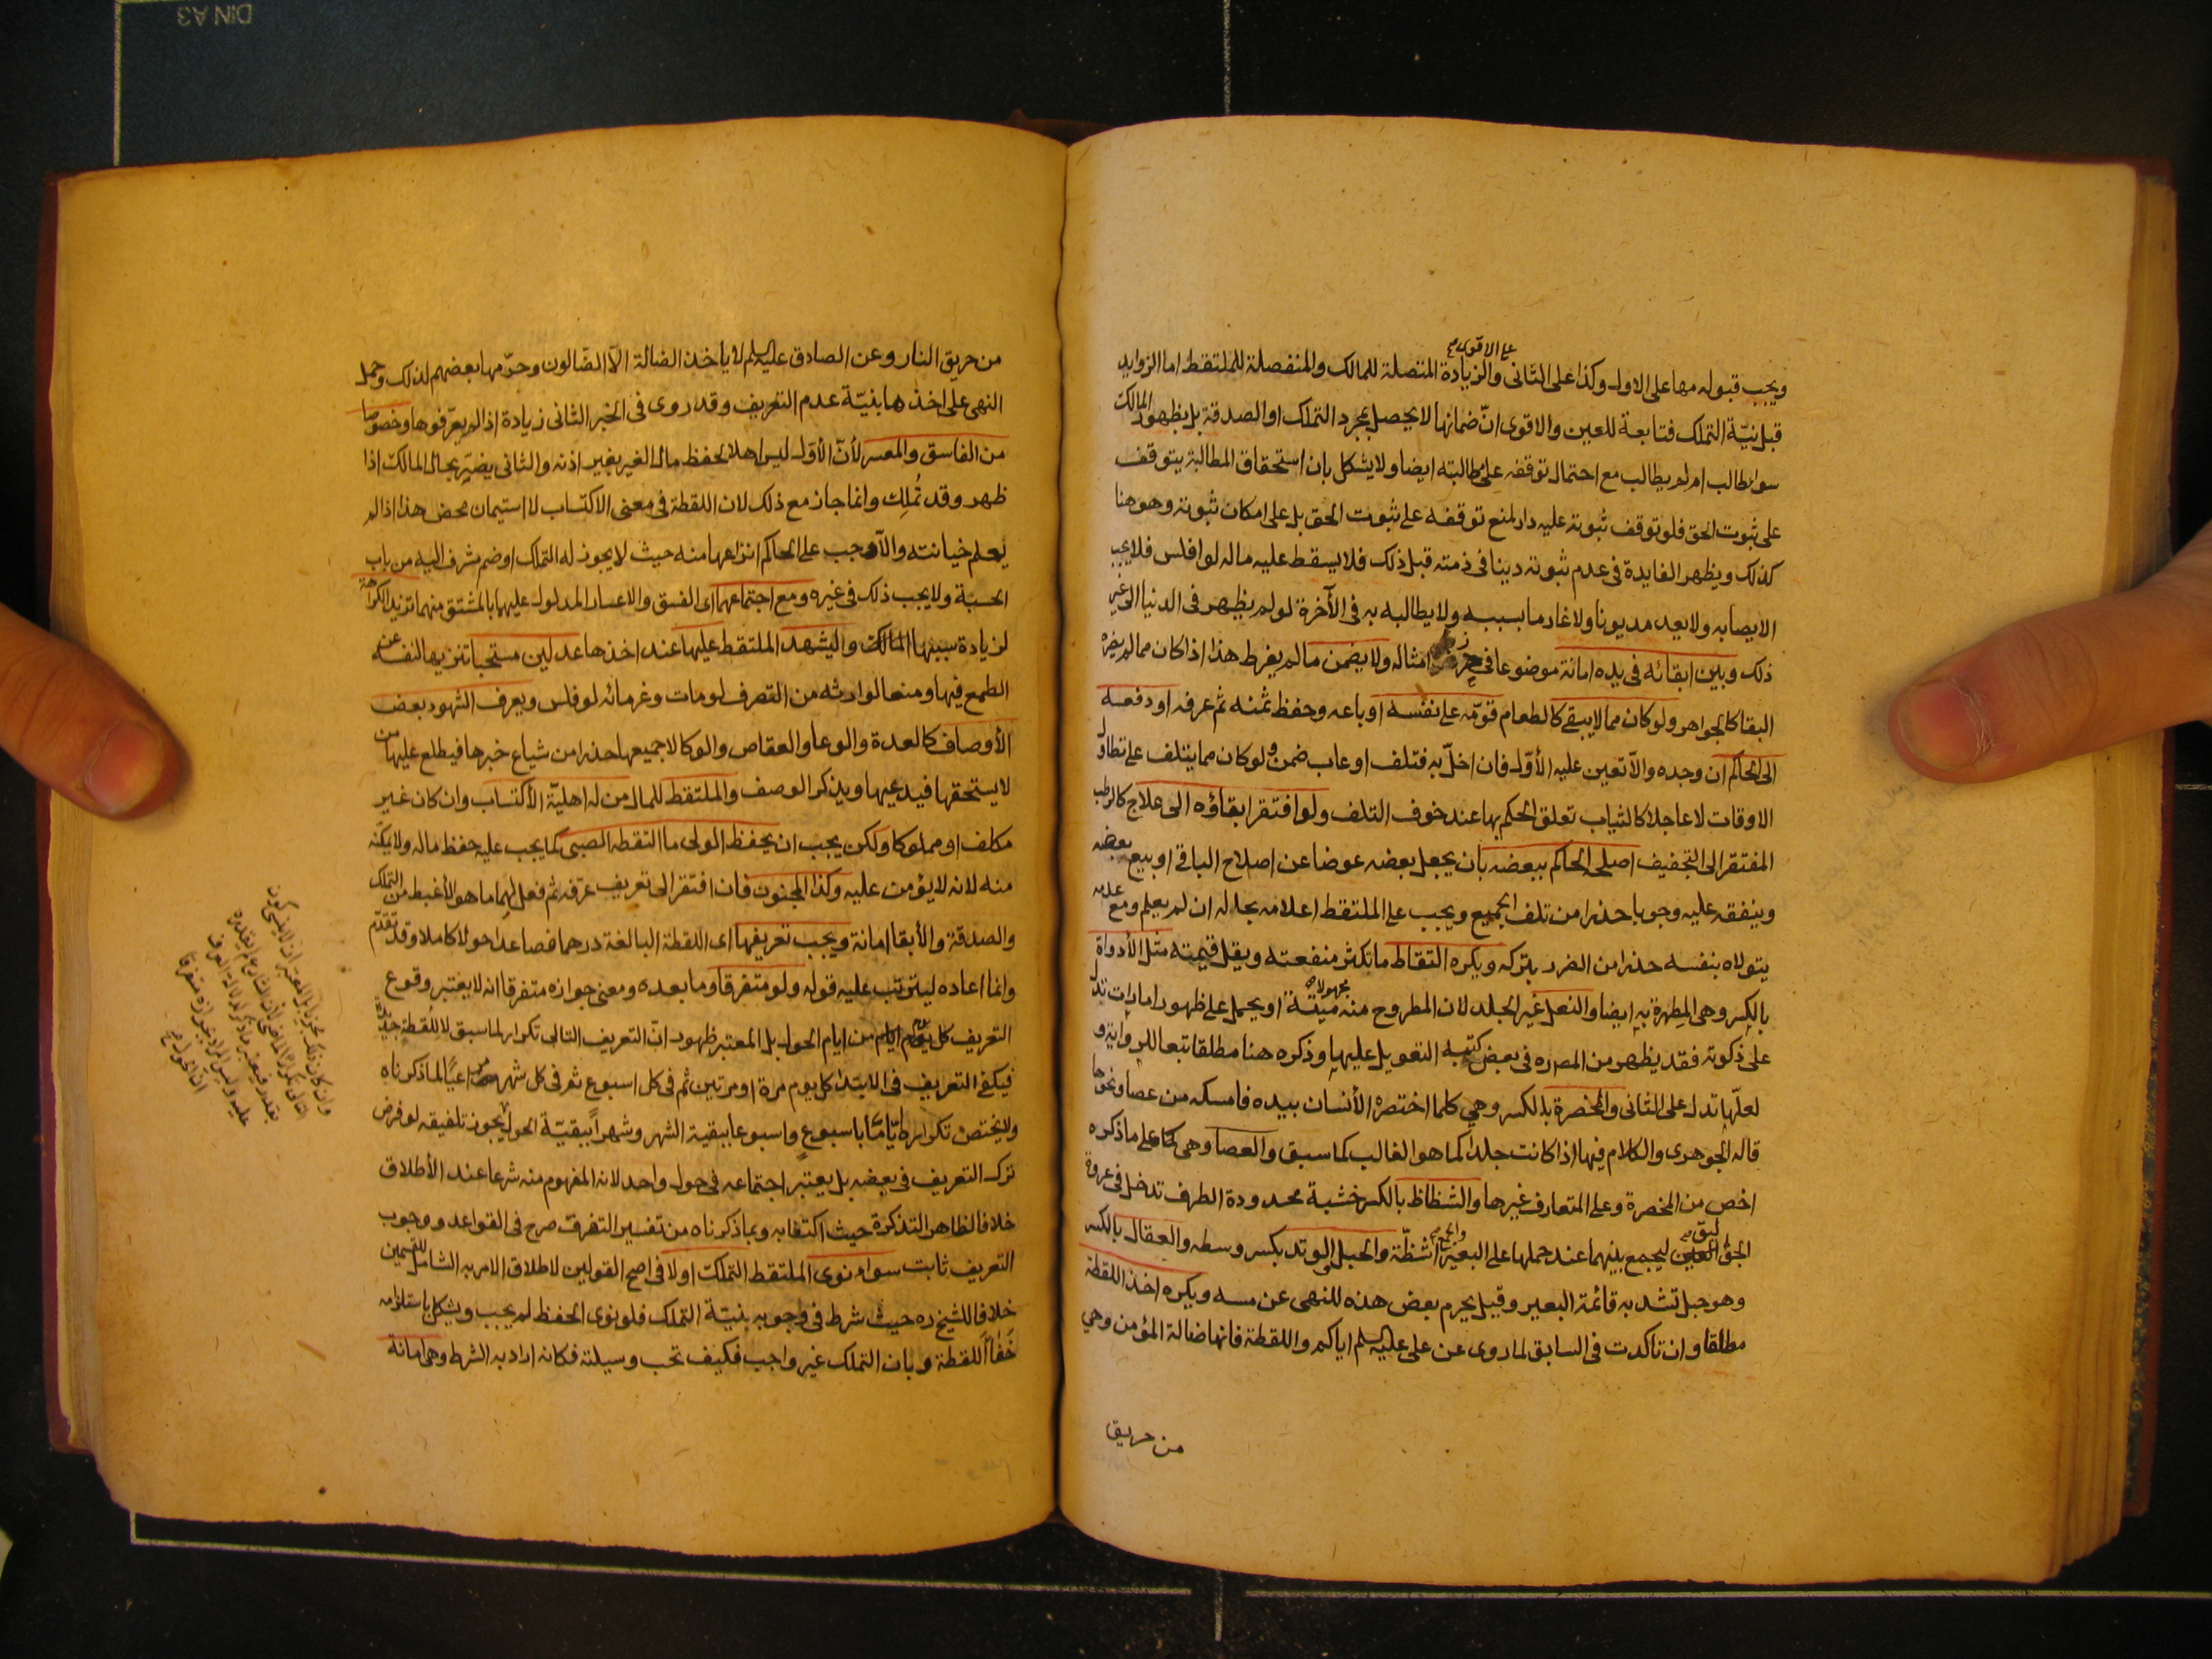 على الاقوى
ويجب قبوله معها على الاول وكذا على الثانى والزيادة المتصلة للمالك والمنفصلة للملتقط اما الزوايد
قبل نيّة التملك فتابعة للعين والاقوى انّ ضمانها لا يحصل بمجرد التملك او الصدقة بل بظهور المالك
سواء طالب ام لم يطالب مع احتمال توقفه على مطالبته ايضا ولا يشكل بان استحقاق المطالبة يتوقف
على ثبوت الحق فلو توقف ثبوته عليه دار لمنع توقفه على ثبوت الحق بل على امكان ثبوته وهو هنا
كذلك ويظهر الفايدة فى عدم ثبوته دينا فى ذمته قبل ذلك فلا يسقط عليه ماله لو افلس فلا يجب
الايصا به ولا يعد مديونا ولا غارما بسببه ولا يطالبه به فى الآخرة لو لم يظهر فى الدنيا الى غير
ذلك وبين ابقائه فى يده امانة موضوعا فى حرز امثاله ولا يضمن مالم يفرط هذا اذا كان مما لم يضره
البقا كالجواهر ولو كان مما لا يبقى كالطعام قوّمه على نفسه او باعه وحفظ ثمنه ثم عرفه او دفعه
الى الحاكم ان وجده والّا تعين عليه الأوّل فان اخلّ به فتلف او عاب ضمن ولو كان مما يتلف على تطاول
الاوقات لا عاجلا كالثياب تعلق الحكم بها عند خوف التلف ولو افتقر ابقاؤه الى علاج كالرطب
المفتقر الى التجفيف اصلح الحاكم ببعضه بان يجعل بعضه عوضا عن اصلاح الباقى او يبيع بعضه
وينفقه عليه وجوبا حذرا من تلف الجميع ويجب على الملتقط اعلامه بحاله ان لم يعلم ومع عدمه
يتولاه بنفسه حذرا من الضرر بتركه ويكره التقاط ما تكثر منفعته ويقل قيمته مثل الأدواة
بالكسر وهى المطهرة به ايضا والنعل غير الجلد لان المطروح منه مجهولا ميتة او يحمل على ظهور امارات تدل
على ذكوته فقد يظهر من المصره فى بعض كتبه التعويل عليها وذكره هنا مطلقا تبعا للرواية و
لعلّها تدل على الثانى والمخصرة بالكسر وهي كلما اختصره الأنسان بيده فامسكه من عصا ونحوها
قاله الجوهرى والكلام فيها اذا كانت جلدا كما هو الغالب كما سبق والعصا وهى على ماذكره
اخص من المخصرة وعلى المتعارف غيرها والشظاظ بالكسر خشبة محدودة الطرف تدخل فى عروة
الجوالقين ليجمع بينهما عند حملها على البعير والجمع اشظّة والحبل والوتد بكسر وسطه والعقال بالكسر
وهو حبل تشد به قائمة البعير وقيل يحرم بعض هذه للنهى عن مسه ويكره اخذ اللقطة
مطلقا وان تاكدت فى السابق لما روى عن على عليه السلم اياكم واللقطة فانها ضالة المؤمن وهى
من حريق
من حريق النار وعن الصادق عليه السلم لا ياخذ الضالة الّا الضّالون وحرّمها بعضهم لذلك وحمل
النهى على اخذها بنيّة عدم التعريف وقد روى فى الخبر الثانى زيادة اذا لم يعرّفوها وخصوصا
من الفاسق والمعسر لأنّ الأوّل ليس اهلا لحفظ مال الغير بغير اذنه والثانى يضرّ بحال المالك اذا
ظهر وقد تُملك وانما جاز مع ذلك لان اللقطة فى معنى الاكتساب لا استيمان محض هذا اذا لم
يعلم خيانته والّا وجب على الحاكم انتزاعها منه حيث لا يجوز له التملك او ضم مشرف اليه من باب
الحسبة ولا يجب ذلك فى غيره ومع اجتماعهما اى الفسق والاعسار المدلول عليهما بالمشتق منهما تزيد الكراهة
لزيادة سببها المالك وليشهد الملتقط عليها عند اخذها عدلين مستحبا تنزيها لنفسه عن
الطمع فيها ومنعا لوارثه من التصرف لو مات وغرمائه لو فلس ويعرف الشهود بعض
الأوصاف كالعدة والوعا والعقاص والوكا لا جميعها حذرا من شياع خبرها فيطلع عليها من
لا يستحقها فيدعيها ويذكر الوصف والملتقط للمال من له اهليّة الأكتساب وان كان غير
مكلف او مملوكا ولكن يجب ان يحفظ الولى ما التقطه الصبى كما يجب عليه حفظ ماله ولا يمكّنه
منه لانه لا يؤمن عليه وكذا المجنون فان افتقر الى تعريف عرّفه ثم فعل لهما ما هو الأغبط من التملك
والصدقة والأبقا امانة ويجب تعريفها اى اللقطة البالغة درهما فصاعدا حولا كاملا وقد تقدّم
وانما اعاده ليترتب عليه قوله ولو متفرقا وما بعده ومعنى جوازه متفرقا انه لا يعتبر وقوع
التعريف كل يوم من ايام الحول بل المعتبر ظهور انّ التعريف التالى تكرار لما سبق لا للُقطة جديدة
فيكفى التعريف فى الابتداء كل يوم مرة او مرتين ثم فى كل اسبوع ثم فى كل شهر مراعيًا لما ذكرناه
ولا يختص تكراره ايّامًا باسبوعٍ واسبوعا ببقية الشهر وشهراً ببقيّة الحول يجوز تلفيقه لو فرض
ترك التعريف فى بعضه بل يعتبر اجتماعه فى حول واحد لانه المفهوم منه شرعا عند الأطلاق
خلافا لظاهر التذكرة حيث اكتفا به وبما ذكرناه من تفسير التفرق صرح فى القواعد ووجوب
التعريف ثابت سواء نوى الملتقط التملك او لا فى اصح القولين لاطلاق الامر به الشامل للقسمين
خلافا للشيخ ره حيث شرط فى وجوبه بنيّة التملك فلو نوى الحفظ لم يجب ويشكل باستلزامه
خَفاًا للقطة وبان التملك غير واجب فكيف تجب وسيلته فكانه اراد به الشرط وهى امانة